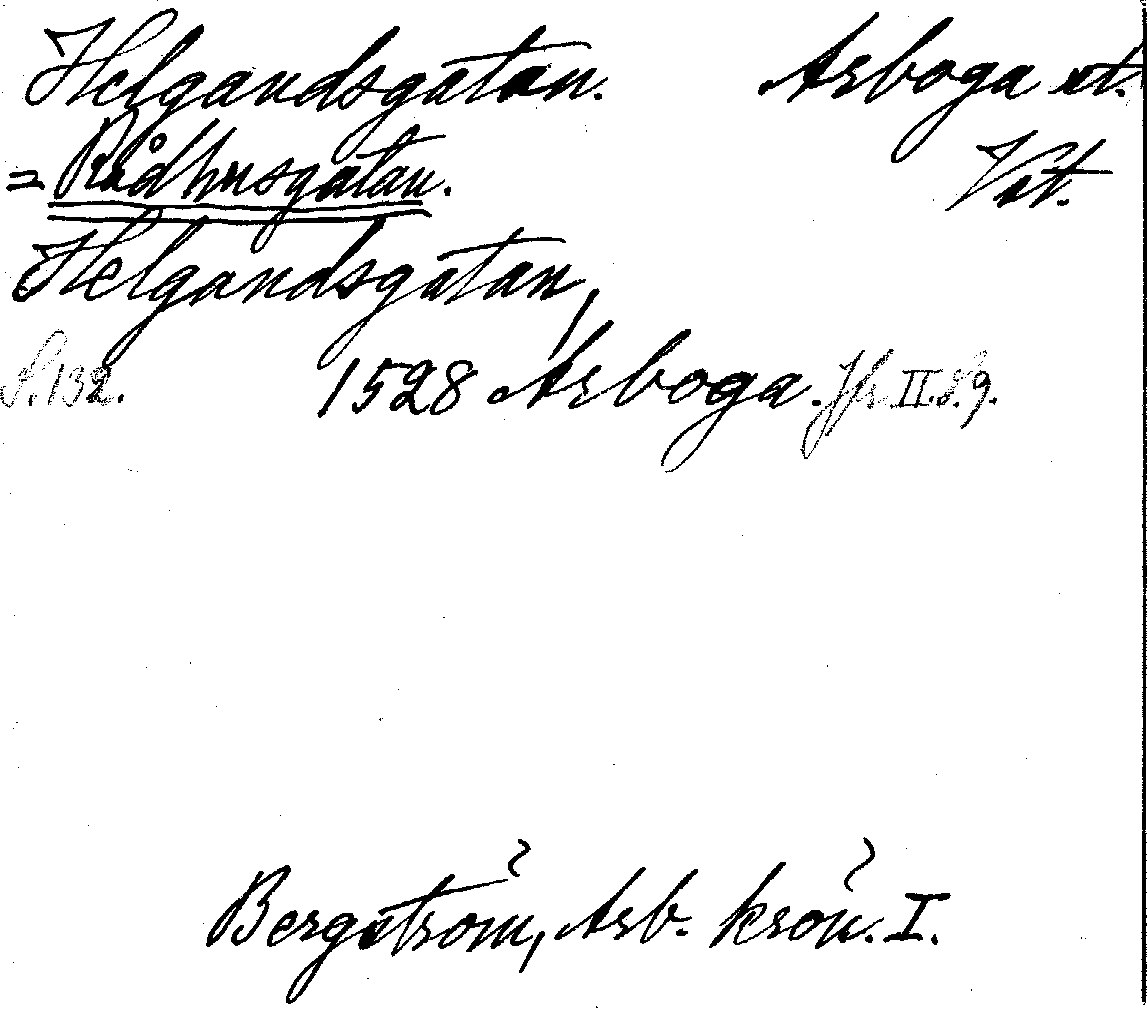 Helgandsgatan. Arboga st.
= Rådhusgatan. Vst.
Helgandsgatan,
S. 132. 1528 Arboga. Jfr II. S. 9.
Bergström, Arb. krön. I.